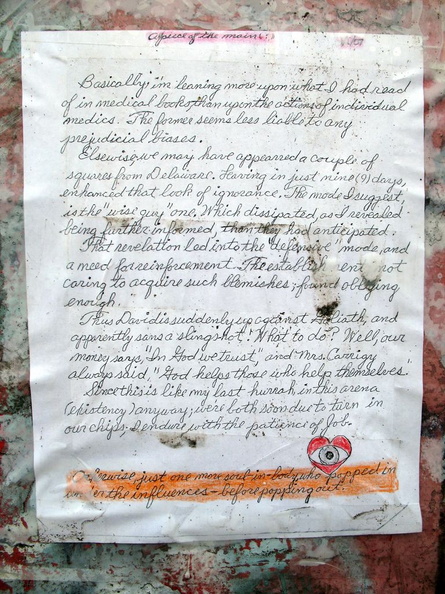 A piece of the main(?)
Basically, i'm leaning more upon what I had read
of in medical books than upon the actions of individual
medics. The former seems less liable to any
prejudicial biases.
Elsewise, we may have appeared a couple of
squares from Delaware. Having in just nine (9) days,
enhanced that look of ignorance. The mode I suggest,
is the "wise guy" one. Which dissipated, as I revealed
being further informed, than they had anticipated.
That revelation led into the "defensive" mode, and
a need for reinforcement. The establish ent not
caring to acquire such blemishes; found obliging
enough.
Thus David is suddenly up against Goliath, and
apparently sans a slingshot! What to do? Well, our
money says, "In God we trust," and Mrs. Carrigy
always said, "God helps those who help themselves.
Since this is like my last hurrah in this arena
(existency) anyway; we're both soon due to turn in
our chips; I endure with the patience of Job.
wise just one more soul-in-body who popped in
the influences - before popping out.